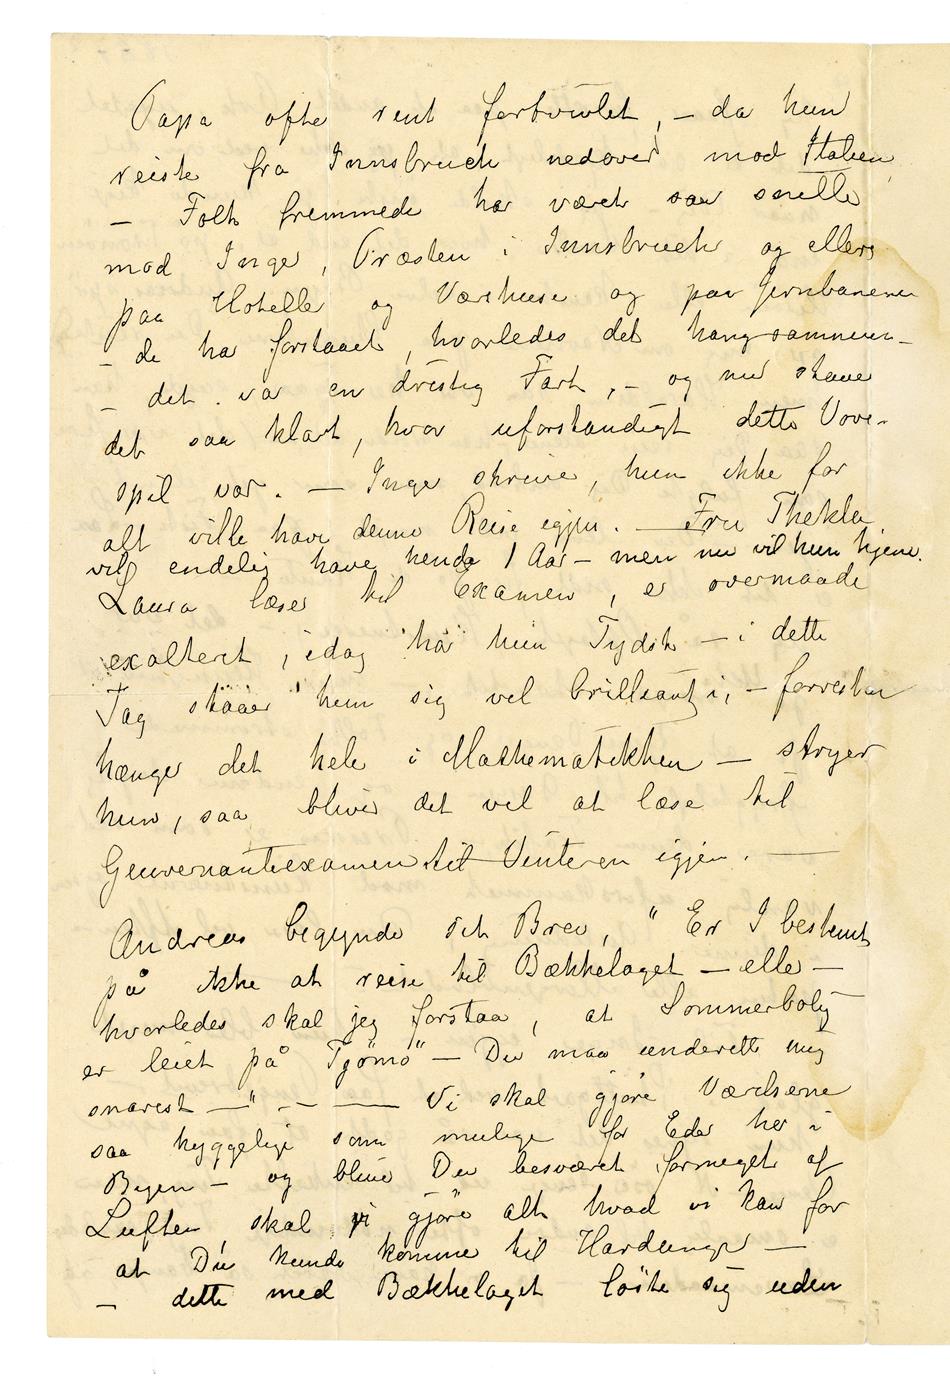 Papa ofte rent fortvivlet, – da hun
reiste fra Innsbruck nedover mod Italien,
– Folk fremmede har været saa snille
mod Inger, Præsten i Innsbruck og ellers
paa Hoteller og Værthuse og paa Jernbanerne
– de har forstaaet, hvorledes det hang sammen –
– det var en dristig Fart, – og nu staar
det saa klart, hvor uforstandigt dette Vove-
spil var. – Inger skriver, hun ikke for
alt ville have denne Reise igjen. – Fru Thekla
vil endelig have hende 1 Aar – men nu vil hun hjem.
Laura læser til Examen, er overmaade
exalteret, idag har hun Tydsk – i dette
Fag staaer hun sig vel brilliant i, – forresten
hænger det hele i Mathematikken – stryger
hun, saa bliver det vel at læse til
Guvernanteexamen til Vinteren igjen. —
Andreas begynder sit Brev, "Er I bestemt
på ikke at reise til Bækkelaget – eller –
hvorledes skal jeg forstaa, at Sommerbolig
er leiet på Tjømø" – Du maa underrette mig
snarest —" – – — Vi skal gjøre Værelserne
saa hyggelige som mulige for Eder her i
Byen – og bliver Du besværet formeget af
Luften, skal vi gjøre alt hvad vi kan for
at Du kunde komme til Hardanger —
– dette med Bækkelaget løste sig uden